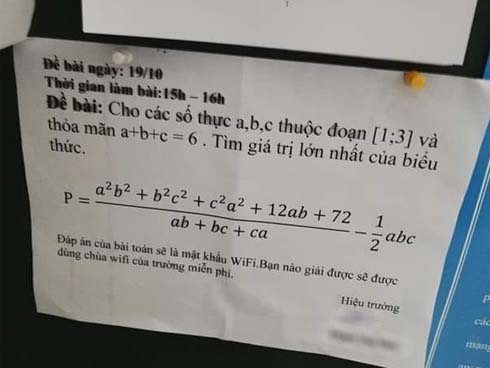 Đề bài ngày: 19/10
Thời gian làm bài:15h – 16h
Đề bài: Cho các số thực a,b,c thuộc đoạn [1;3] và
thỏa mãn a+b+c = 6 . Tìm giá trị lớn nhất của biểu
thức.
P = \frac{a²b² + b²c² + c²a² + 12ab + 72}{ab + bc + ca} − \frac{1}{2}abc
Đáp án của bài toán sẽ là mật khẩu WiFi.Bạn nào giải được sẽ được
dùng chùa wifi của trường miễn phí.
Hiệu trưởng